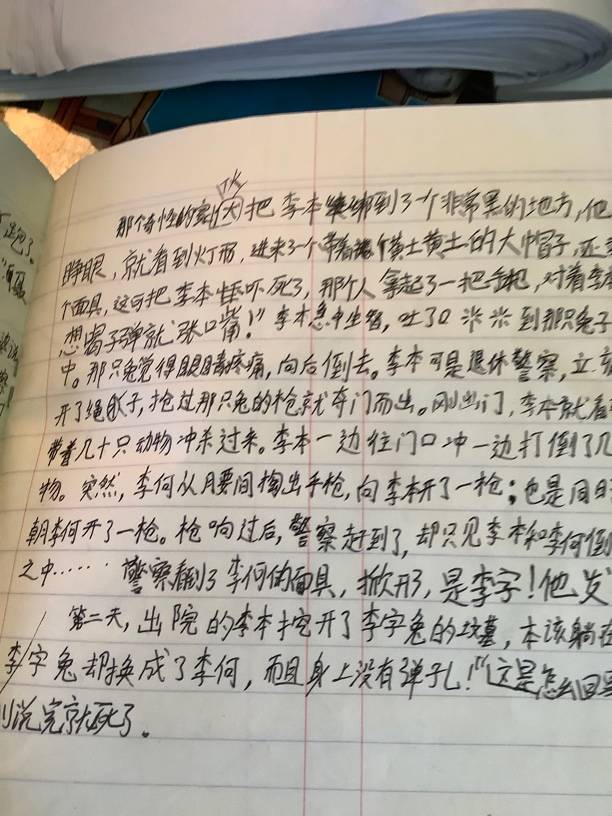 那个奇怪的家伙把李本绑到了一个非常黑的地方,他
睁眼,就看到灯形,进来了个带着黄土黄土的大帽子,还
个面具,这可把李本吓死了,那个人拿起了一把手把,对着李本
想喝子弹就张口嘴!”李本急中生智,吐了口 到那只兔子
中。那只兔觉得眼睛疼痛,向后倒去。李本可是退休警察,立
开了绳子,抢过那只兔的枪就夺门而出。刚出门,李本就看
带着几十只动物冲杀过来。李本一边往门口冲一边打倒了几
物。突然,李何从腰间掏出手枪,向李本开了一枪;也是同时
朝李何开了一枪。枪响过后,警察赶到了,却只见李本和李何倒
之中……警察看到了李何的面具,掀开了,是李字!他发
第二天,出院的李本挖开了李字兔的坟墓,本该躺在
李字兔却换成了李何,而且身上没有弹孔!“这是怎么回
说完就死了。
跑了。